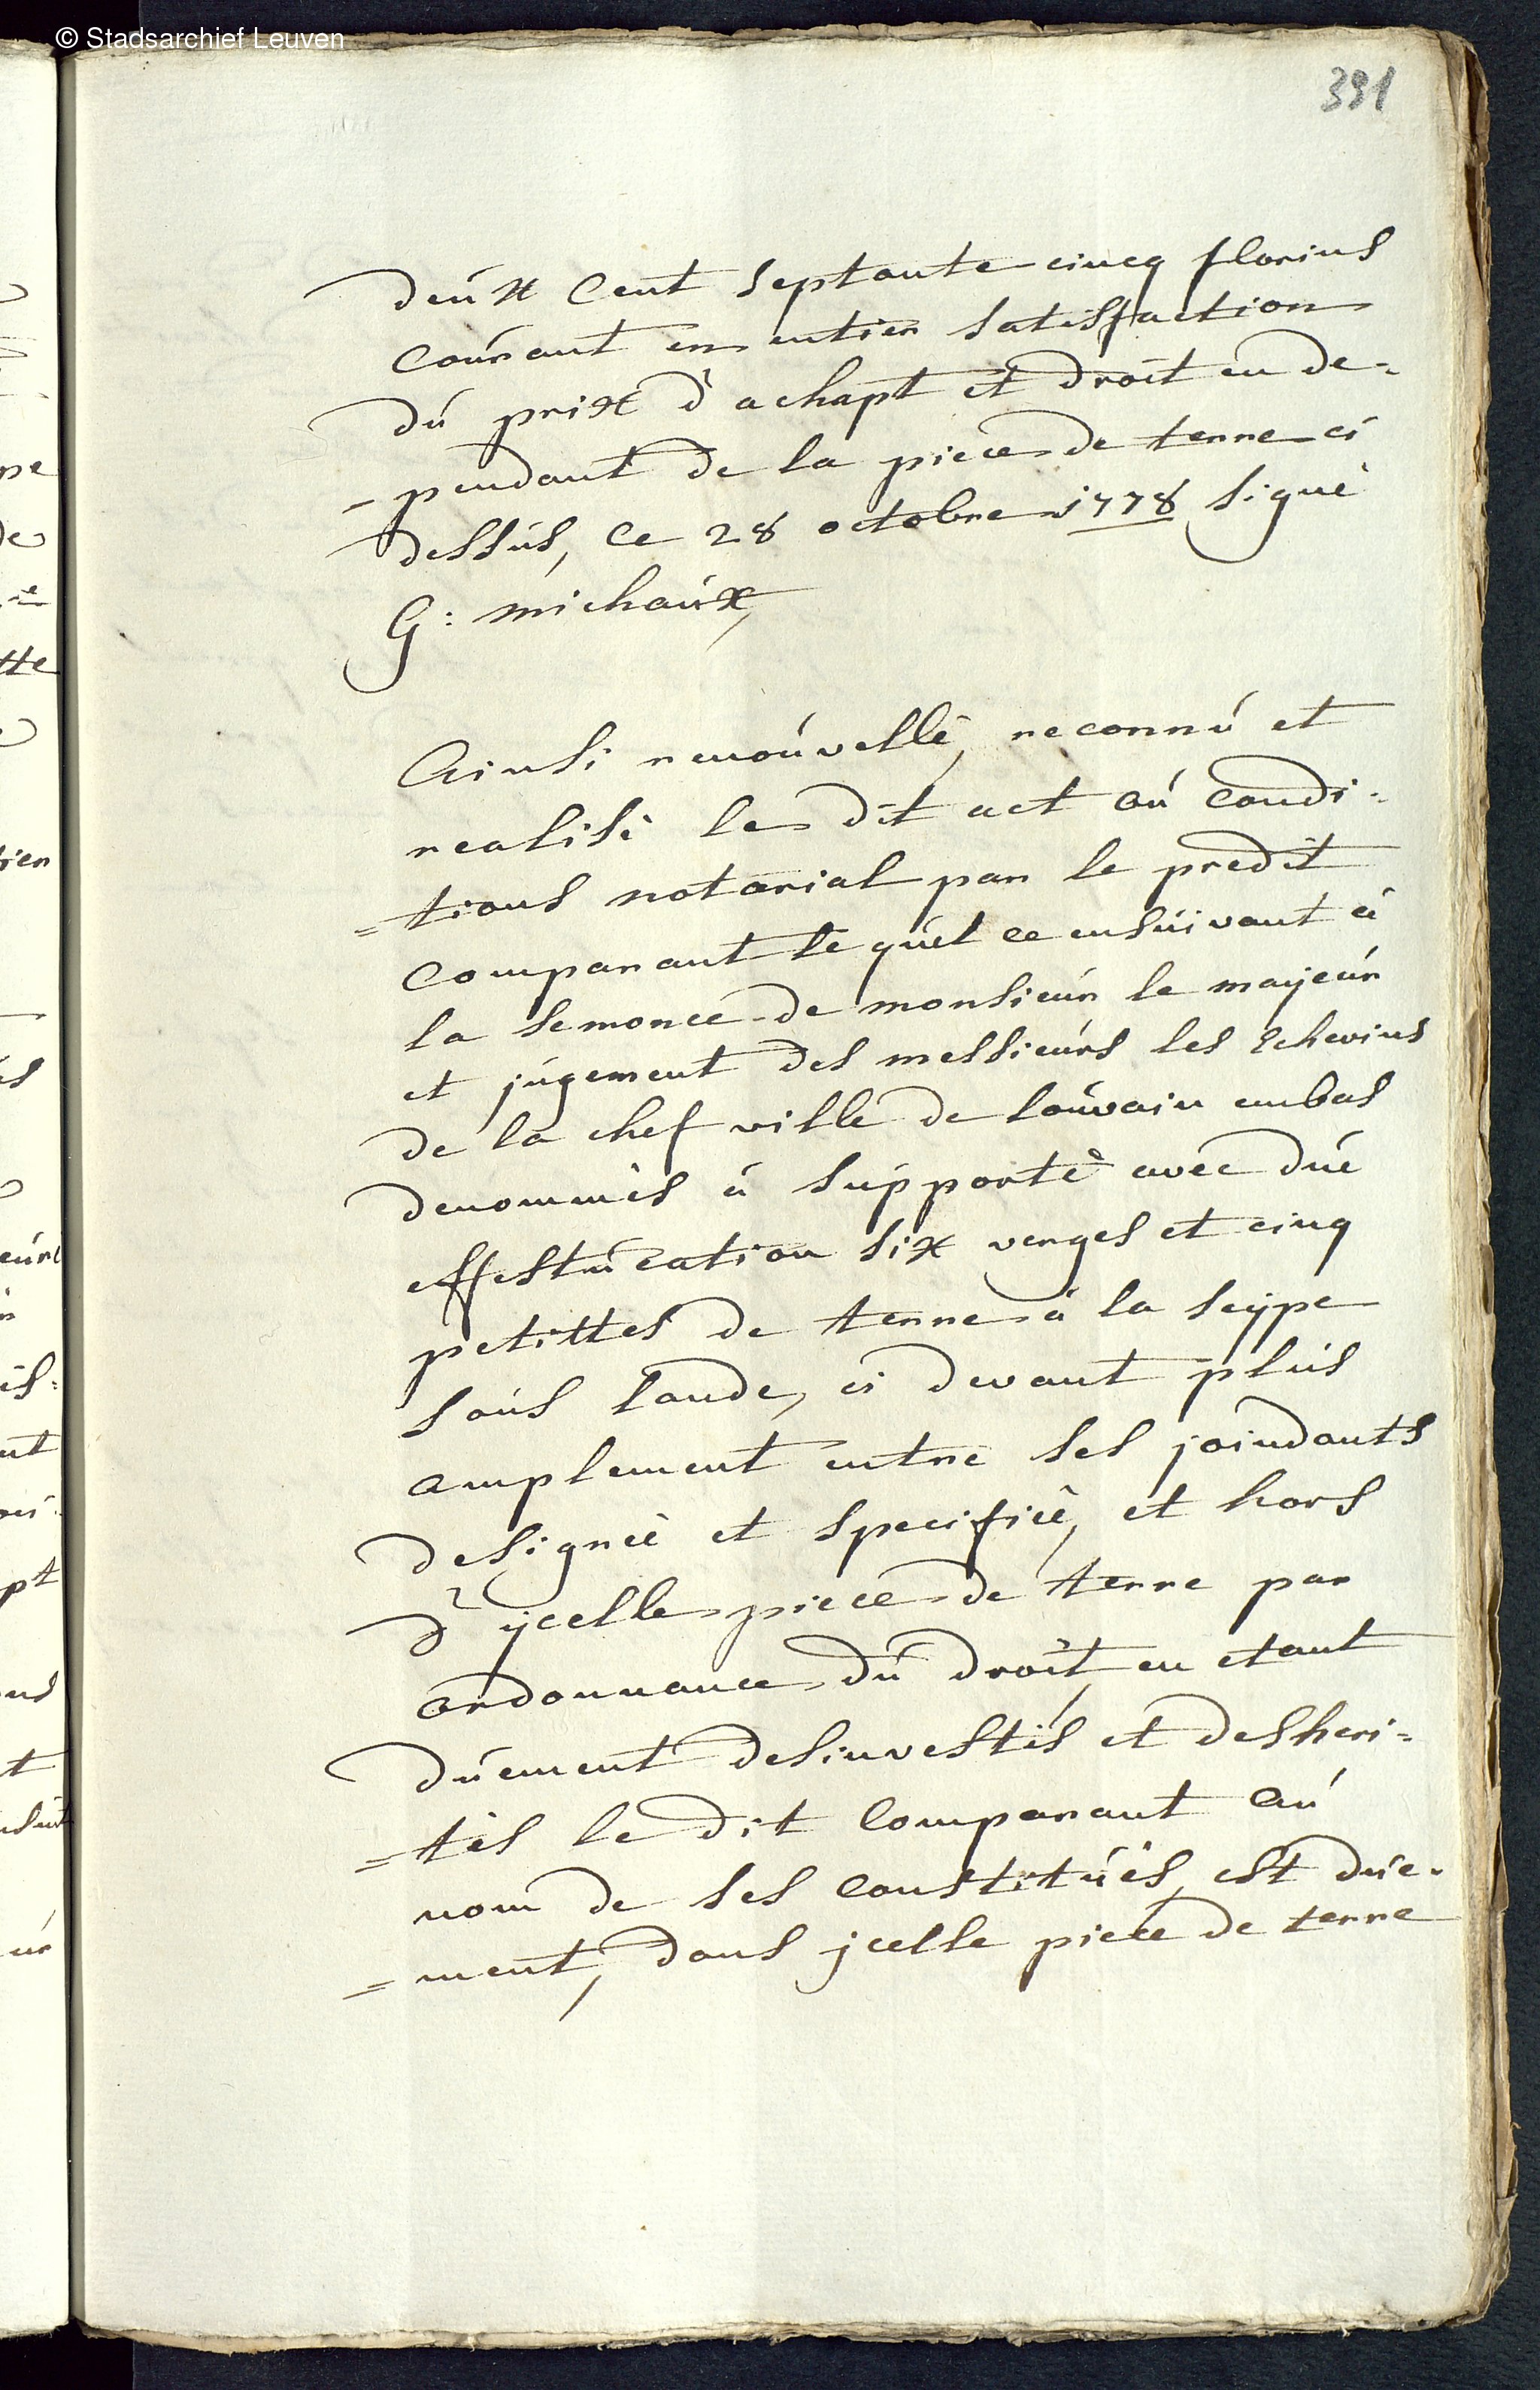 © Stadsarchief Leuven
391
deux Cent septante cincq florins
courant en entier satisfaction
du prix d'achapt et droit en de-
-pendant de la piece de terre ci
dessus, ce 28 octobre 1778 signé
G: michaux,
Ainsi renouvellé, reconnu et
realisé le dit act ou condi-
=tions notarial par le predit
comparant le quel ce ensuivant à
la semonce de monsieur le mayeur
et jugement des messieurs les Echevins
de la chef ville de louvain embas
denommés à supporté avec düe
effestucation six verges et cinq
petittes de terre à la seype
sous lande, ci devant plus
amplement entre ses joindants
designée et specifiée, et hors
d'ycelle piece de terre par
ordonnance du droit, en etant
düement desinvestis et desheri=
=tés le dit Comparant au
nom de ses constitués, est düe-
=ment, dans jcelle piece de terre